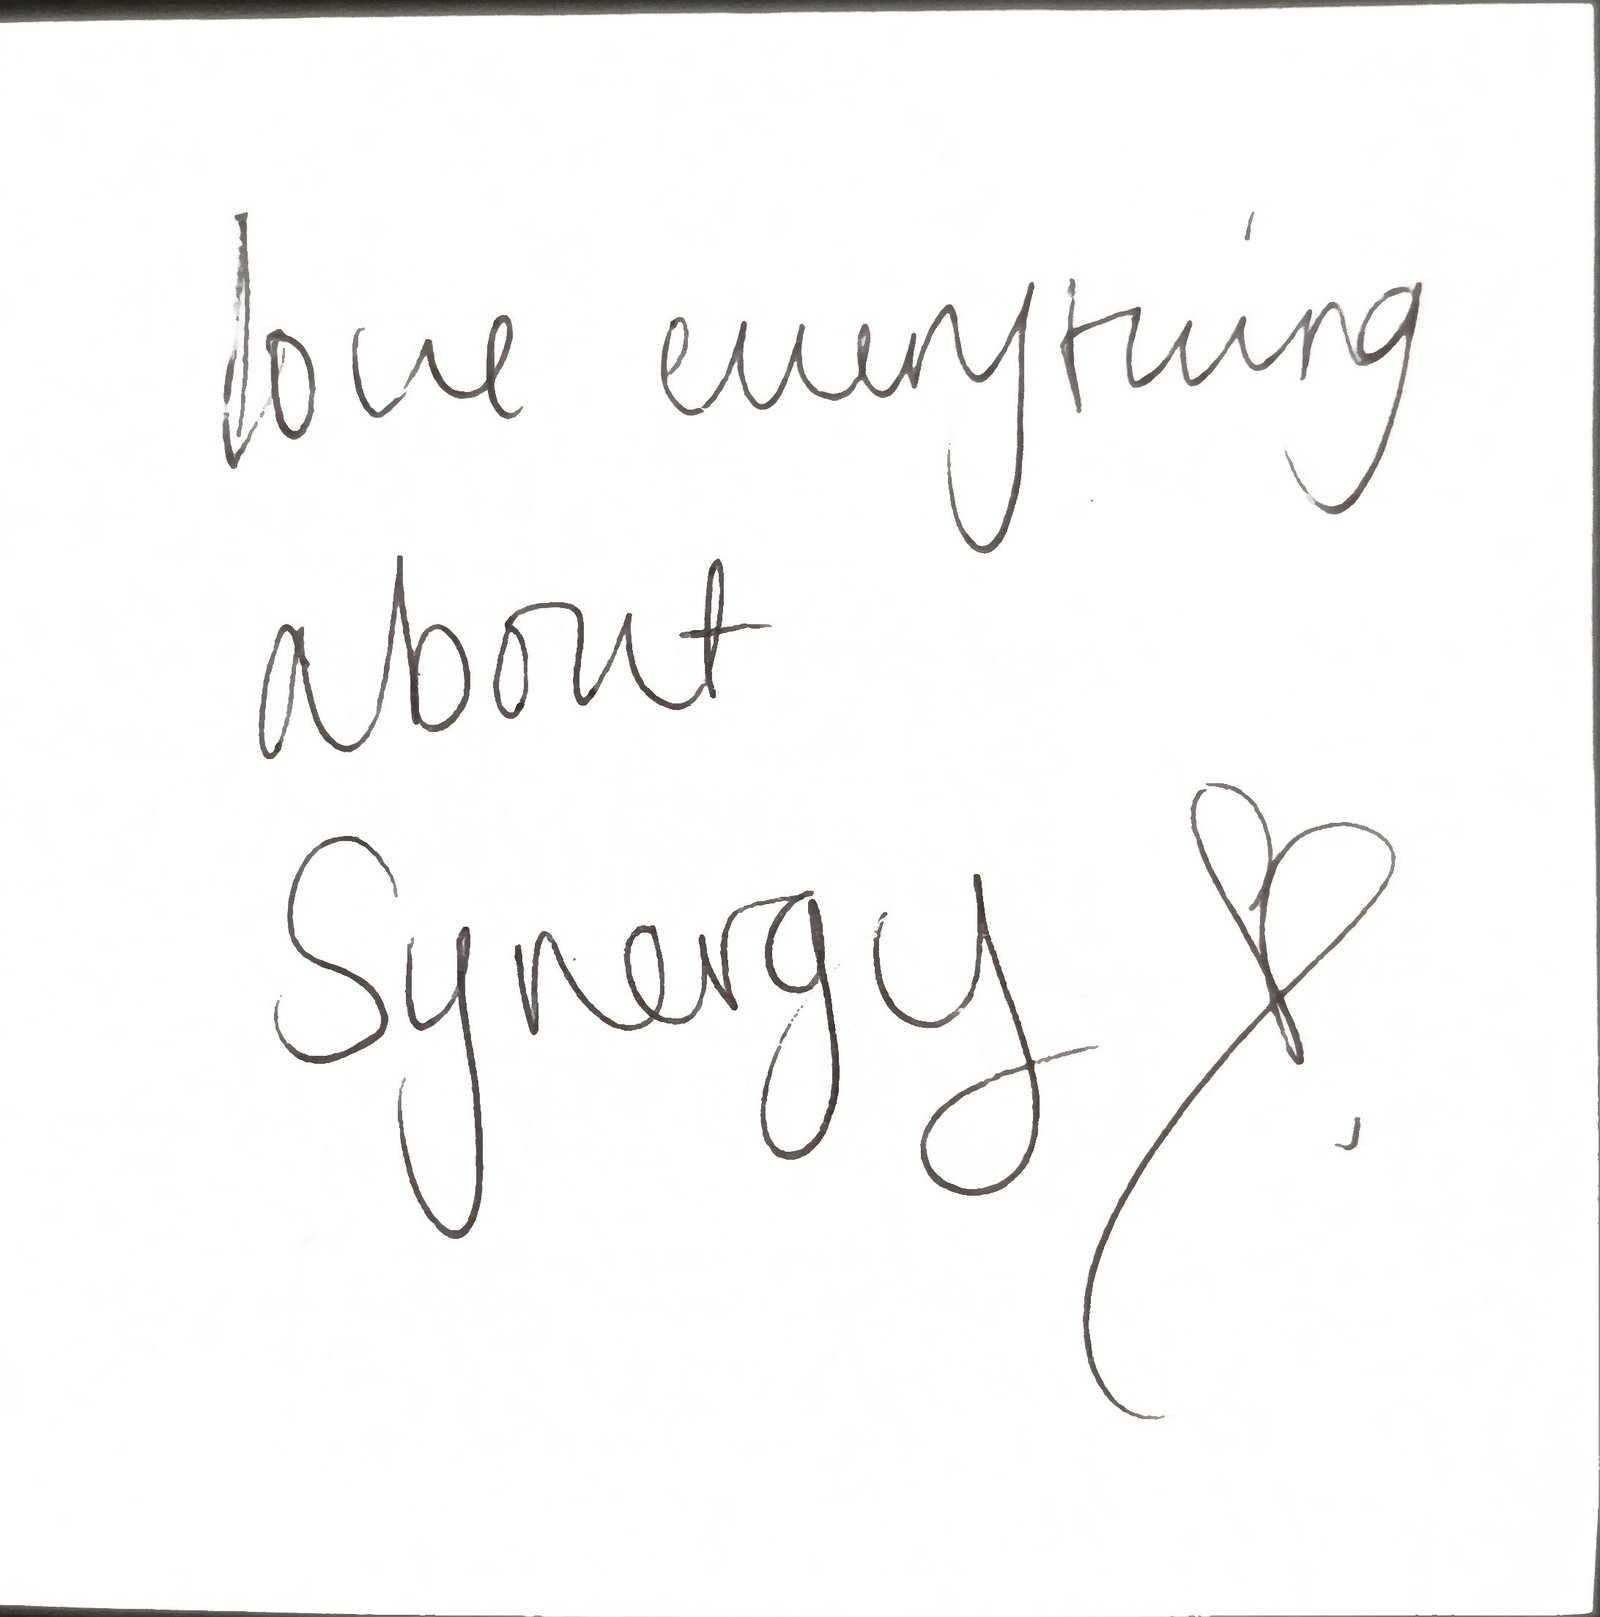 love everything
about
Synergy